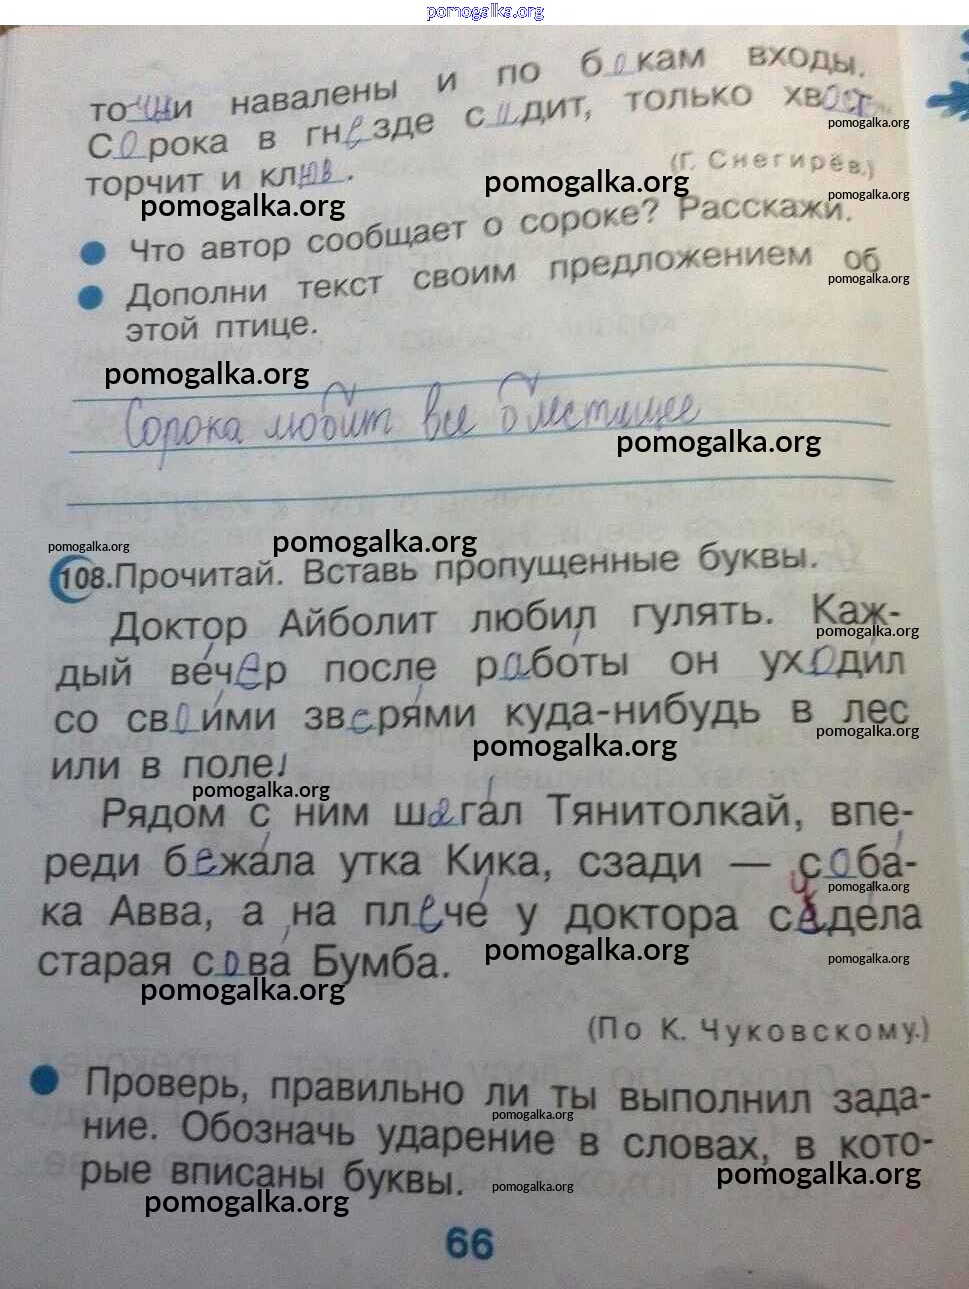 pomogalka.org
точки навалены и по бокам входы.
Сорока в гнезде сидит, только хвост
pomogalka.org
торчит и клюв.
(Г. Снегирёв.)
pomogalka.org
pomogalka.org
pomogalka.org
Что автор сообщает о сороке? Расскажи.
Дополни текст своим предложением об
pomogalka.org
этой птице.
pomogalka.org
Сорока любит все блестящее
pomogalka.org
pomogalka.org
pomogalka.org
108. Прочитай. Вставь пропущенные буквы.
Доктор Айболит любил гулять. Каж-
pomogalka.org
дый вечер после работы он уходил
со своими зверями куда-нибудь в лес
pomogalka.org
pomogalka.org
или в поле.
pomogalka.org
Рядом с ним шагал Тянитолкай, впе-
реди бежала утка Кика, сзади — соба-
pomogalka.org
ка Авва, а на плече у доктора сидела
старая сова Бумба.
pomogalka.org
pomogalka.org
pomogalka.org
(По К. Чуковскому.)
Проверь, правильно ли ты выполнил зада-
pomogalka.org
ние. Обозначь ударение в словах, в кото-
рые вписаны буквы.
pomogalka.org
pomogalka.org
pomogalka.org
66